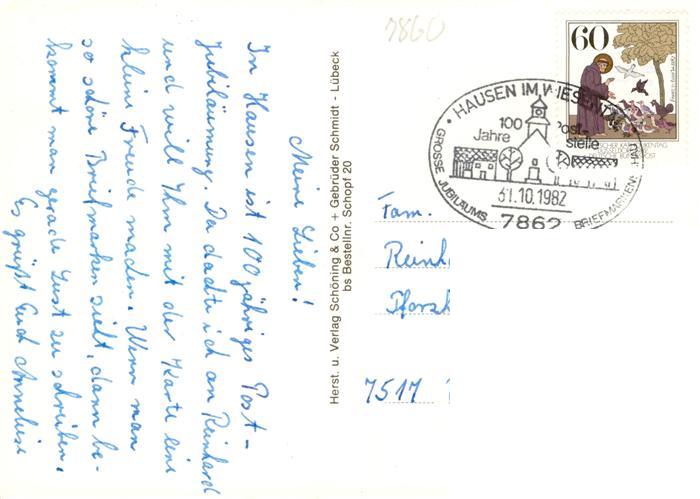 Meine Lieben!
In Hausen ist 100 jähriges Post-
jubiläumung. Da dachte ich an Reinhard
und will Ihm mit der Karte eine
kleine Freude machen. Wenn man
so schöne Briefmarken sieht, dann be-
kommt man gerade Lust zu schreiben.
Es grüßt Euch Anneliese
Herst. u. Verlag Schöning & Co + Gebrüder Schmidt - Lübeck
bs Bestellnr. Schopf 20
7860
60
HAUSEN IM WIESENTAL
100 Jahre
Poststelle
GROSSE JUBILÄUMS
BRIEFMARKEN
31.10.1982
7862
Fam.
Reinh
Pforzh
7517